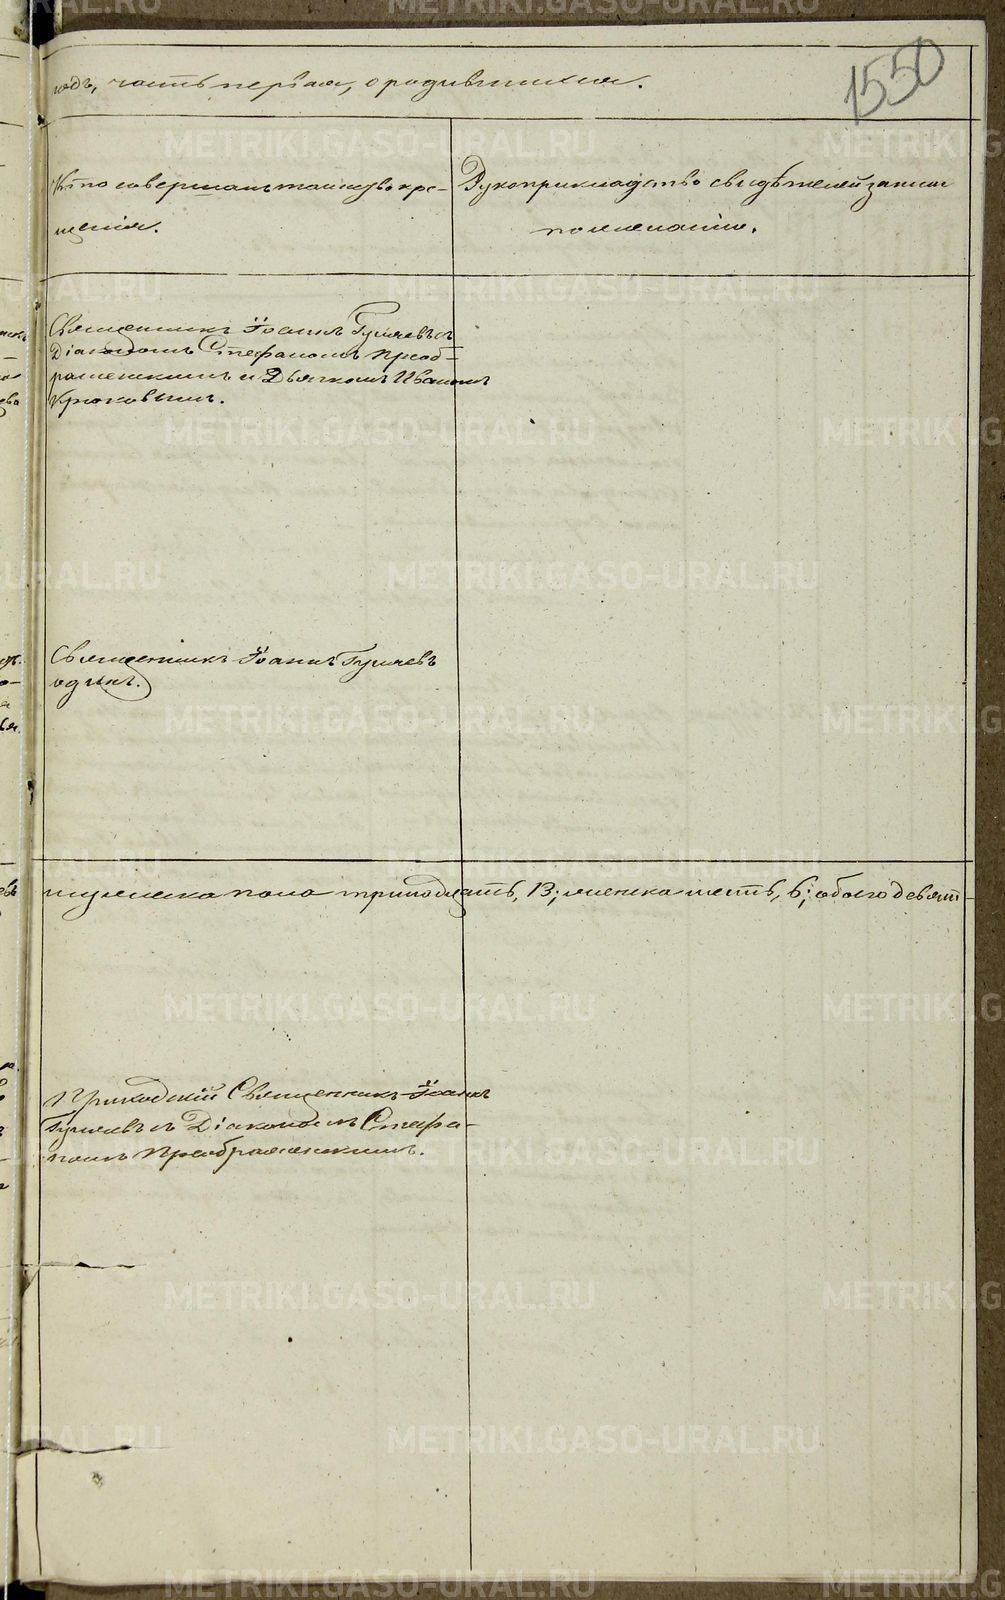 1550
годъ, часть первая, о родившихся.
Кто совершалъ таинство кре-
щенія.
Рукоприкладство свидѣтелей записи
по желанію.
Священникъ Іоаннъ Гуляевъ съ
Діакономъ Стефаномъ Преоб-
раженскимъ и Дьячкомъ Иваномъ
Крюковымъ.
Священникъ Іоаннъ Гуляевъ
одинъ.
мужеска пола тринодцать, 13; женска шесть, 6; обоего девят-
Приходскій Священникъ Іоаннъ
Гуляевъ съ Діакономъ Стефа-
номъ Преображенскимъ.
METRIKI.GASO-URAL.RU